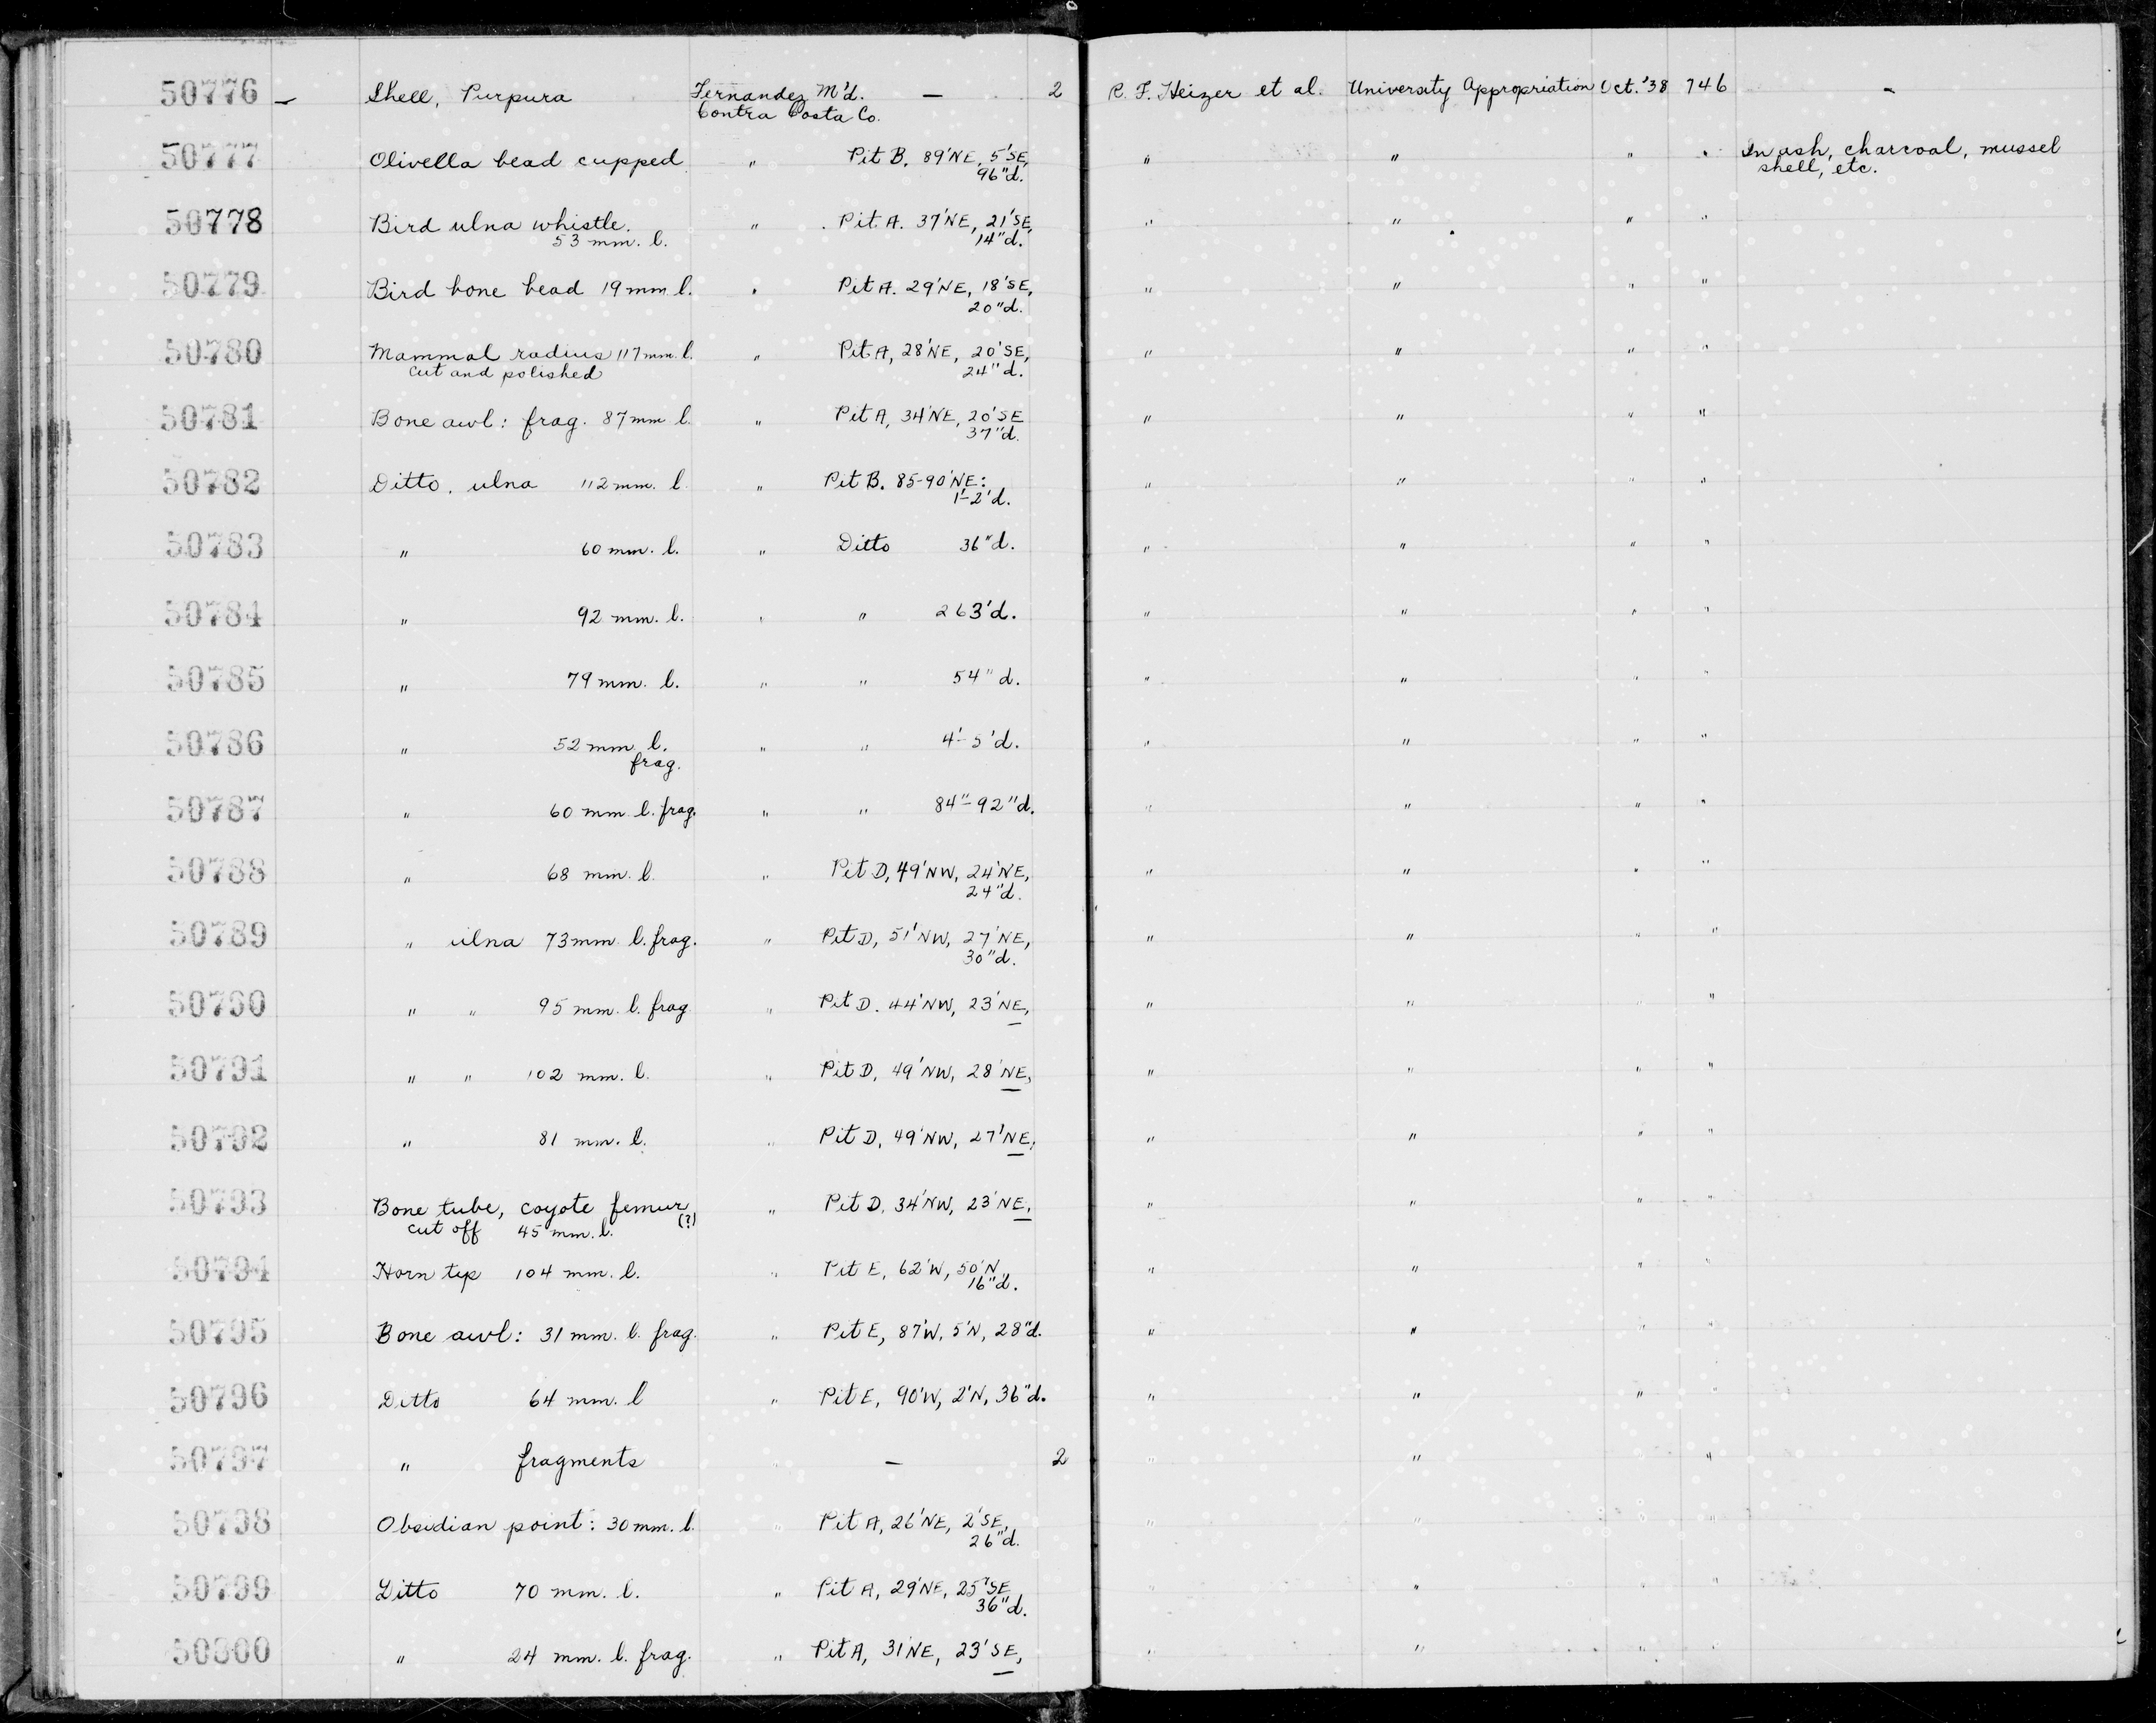 50776 – Shell, Purpura Fernandez M'd. — 2 R. F. Heizer et al. University Appropriation Oct. '38 746 –
Contra Costa Co.
50777 Olivella bead cupped " Pit B. 89'NE, 5'SE, " " " " In ash, charcoal, mussel
96"d. shell, etc.
50778 Bird ulna whistle. " Pit A. 37'NE, 21'SE, " " " "
53 mm. l. 14"d.
50779 Bird bone bead 19 mm l. " Pit A. 29'NE, 18'SE, " " " "
20"d.
50780 Mammal radius 117 mm. l. " Pit A, 28'NE, 20'SE, " " " "
cut and polished 24"d.
50781 Bone awl: frag. 87 mm l. " Pit A, 34'NE, 20'SE " " " "
37"d.
50782 Ditto. ulna 112 mm. l " Pit B. 85-90'NE: " " " "
1'-2'd.
50783 " 60 mm. l. " Ditto 36"d. " " " "
50784 " 92 mm. l. " " 263'd. " " " "
50785 " 79 mm. l. " " 54"d. " " " "
50786 " 52 mm. l. " " 4'-5'd. " " " "
frag.
50787 " 60 mm l. frag. " " 84"-92"d. " " " "
50788 " 68 mm. l. " Pit D, 49'NW, 24'NE, " " " "
24"d.
50789 " ulna 73 mm. l. frag. " Pit D, 51'NW, 27'NE, " " " "
30"d.
50790 " " 95 mm. l. frag " Pit D. 44'NW, 23'NE, — " " " "
50791 " " 102 mm. l. " Pit D, 49'NW, 28'NE, — " " " "
50792 " 81 mm. l. " Pit D, 49'NW, 27'NE, — " " " "
50793 Bone tube, coyote femur " Pit D, 34'NW, 23'NE, — " " " "
cut off 45 mm. l. (?)
50794 Horn tip 104 mm. l. " Pit E, 62'W, 50'N, " " " "
16"d.
50795 Bone awl: 31 mm. l. frag. " Pit E, 87'W, 5'N, 28"d. " " " "
50796 Ditto 64 mm. l " Pit E, 90'W, 2'N, 36"d. " " " "
50797 " fragments — 2 " " " "
50798 Obsidian point: 30 mm. l. " Pit A, 26'NE, 2'SE, " " " "
26"d.
50799 Ditto 70 mm. l. " Pit A, 29'NE, 25'SE " " " "
36"d.
50800 " 24 mm. l. frag. " Pit A, 31'NE, 23'SE, — " " " "